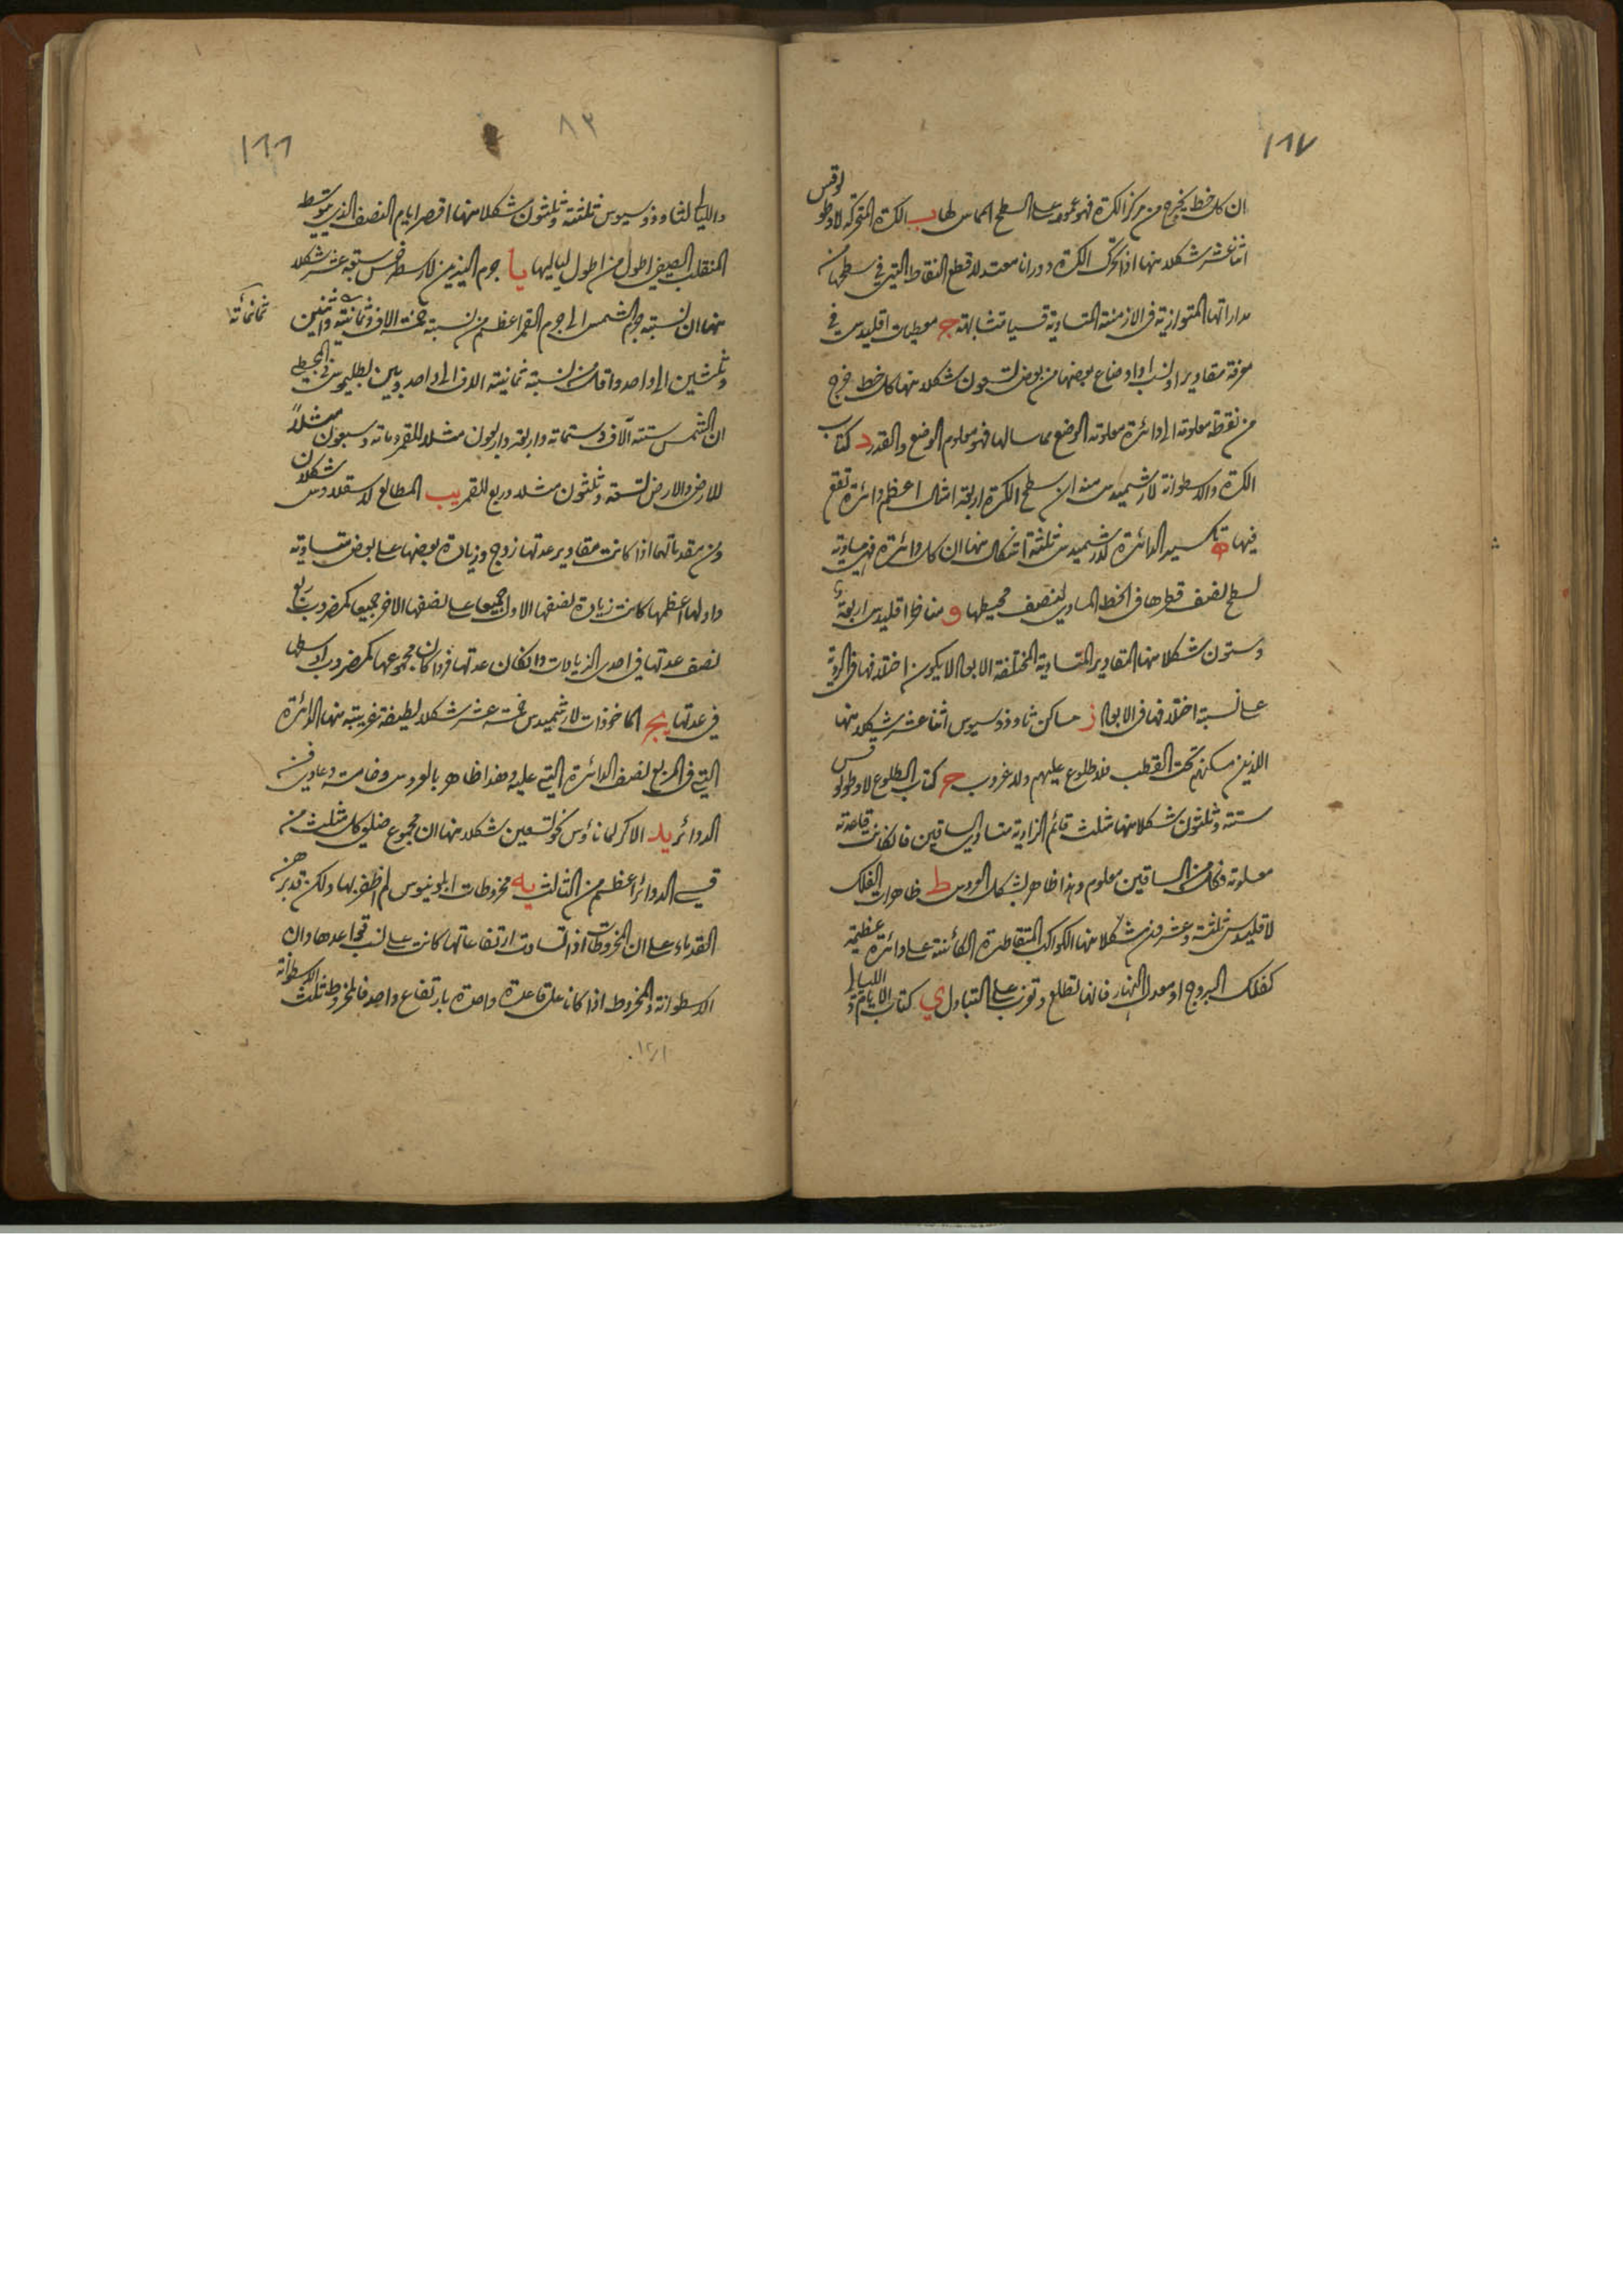 ١٦٧
ان كل خط يخرج من مركز الكرة فهو عمود على السطح المماس لها ب الكرة المتحركة لاوطولوقس
اثنا عشر شكلا منها اذا تحرك الكرة دورانا معتدلا قطع النقاط التي في سطحها من
مداراتها المتوازية في الازمنة المتساوية قسيا متشابهة ج معطيات اقليدس في
معرفة مقادير او نسب او اوضاع بعضها من بعض تسعون شكلا منها كل خط خرج
من نقطة معلومة الى دائرة معلومة الوضع مماسا لها فهو معلوم الوضع والقدر د كتاب
الكرة والاسطوانة لارشميدس منه ان سطح الكرة اربعة امثال اعظم دائرة تقع
فيها ه تكسير الدائرة لارشميدس ثلثة اشكال منها ان كل دائرة فهي مساوية
لسطح نصف قطرها في الخط المساوي لنصف محيطها و مناظر اقليدس اربعة
وستون شكلا منها المقادير المتساوية المختلفة الابعاد لا يكون اختلافها في الروية
على نسبة اختلافها في الابعاد ز مساكن ثاوذوسيوس اثنا عشر شكلا منها
الذين مسكنهم تحت القطب فلا طلوع عليهم ولا غروب ح كتاب الطلوع لاوطولوقس
ستة وثلثون شكلا منها مثلث قائم الزاوية متساوي الساقين فان كانت قاعدته
معلومة فكل من الساقين معلوم وهذا ظاهر بشكل العروس ط ظاهرات الفلك
لاقليدس ثلثة وعشرون شكلا منها الكواكب المتقاطرة الكائنة على دائرة عظيمة
كفلك البروج او معدل النهار فانها تطلع وتغرب على التبادل ي كتاب الايام والليالي
٨٣
١٦٦
والليالي لثاوذوسيوس ثلثة وثلثون شكلا منها اقصر ايام النصف الذي يتوسط
المنقلب الصيفي اطول من اطول لياليها يا جرم النيرين لارسطرخس سبعة عشر شكلا
منها ان نسبة جرم الشمس الى جرم القمر اعظم من نسبة خمسة الاف وثمانية واثنين
ثمانمائة
وثلثين الى واحد واقل من نسبة ثمانية الاف الى واحد وبين بطليموس في المجسطي
ان الشمس ستة آلاف وستمائة واربعة واربعون مثلا للقمر ومائة وسبعون مثلاً
للارض والارض تسعة وثلثون مثلا وربع للقمر يب المطالع لاسقلاوس شكلان
ومن مقدماتهما اذا كانت مقادير عدتها زوج وزيادة بعضها على بعض متساوية
واولها اعظمها كانت زيادة نصفها الاول جميعا على نصفها الاخر جميعا كمضروب ربع
نصف عدتها في احدى الزيادات وان كان عدتها فردا كان مجموعها كمضروب اوسطها
في عدتها يج الماخوذات لارشميدس خمسة عشر شكلا لطيفة غريبة منها الدائرة
التي في المربع نصف الدائرة التي عليه وهذا ظاهر بالعروس وخامسة وحادي من
الدوائر يد الاكر لمانالاؤس نحو تسعين شكلا منها ان مجموع ضلعي كل مثلث من
قسي الدوائر اعظم من الثالث يه مخروطات ابلونيوس لم اظفر بها ولكن قد برهن
القدماء على ان المخروطات اذا تساوت ارتفاعاتها كانت على نسب قواعدها وان
الاسطوانة والمخروط اذا كانا على قاعدة واحدة بارتفاع واحد فالمخروط ثلث الاسطوانة